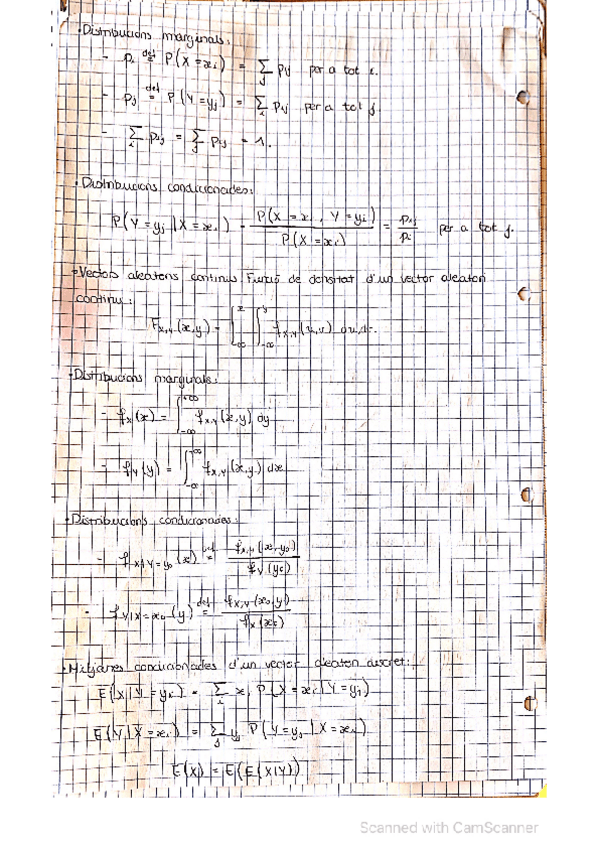 · Distribucions marginals:
- pi def= P(X = xi) = Σj pij per a tot i.
- pj def= P(Y = yj) = Σi pij per a tot j.
- Σi pij = Σj pij = 1.
· Distribucions condicionades:
P(Y = yj | X = xi) = P(X = xi, Y = yj) / P(X = xi) = pij / pi per a tot j.
· Vectors aleatoris continus. Funció de densitat d'un vector aleatori
continu:
FX,Y(x,y) = ∫-∞^x ∫-∞^y fX,Y(u,v)
· Distribucions marginals:
- fX(x) = ∫-∞^+∞ fX,Y(x,y) dy
- fY(y) = ∫-∞^+∞ fX,Y(x,y) dx
· Distribucions condicionades:
- fX|Y=y0 (x) def= fX,Y(x,y0) / fY(y0)
- fY|X=x0 (y) def= fX,Y(x0,y) / fX(x0)
· Mitjanes condicionades d'un vector aleatori discret:
E(X|Y = yj) = Σi xi P(X = xi | Y = yj)
E(Y|X = xi) = Σj yj P(Y = yj | X = xi)
E(X) = E(E(X|Y))
Scanned with CamScanner